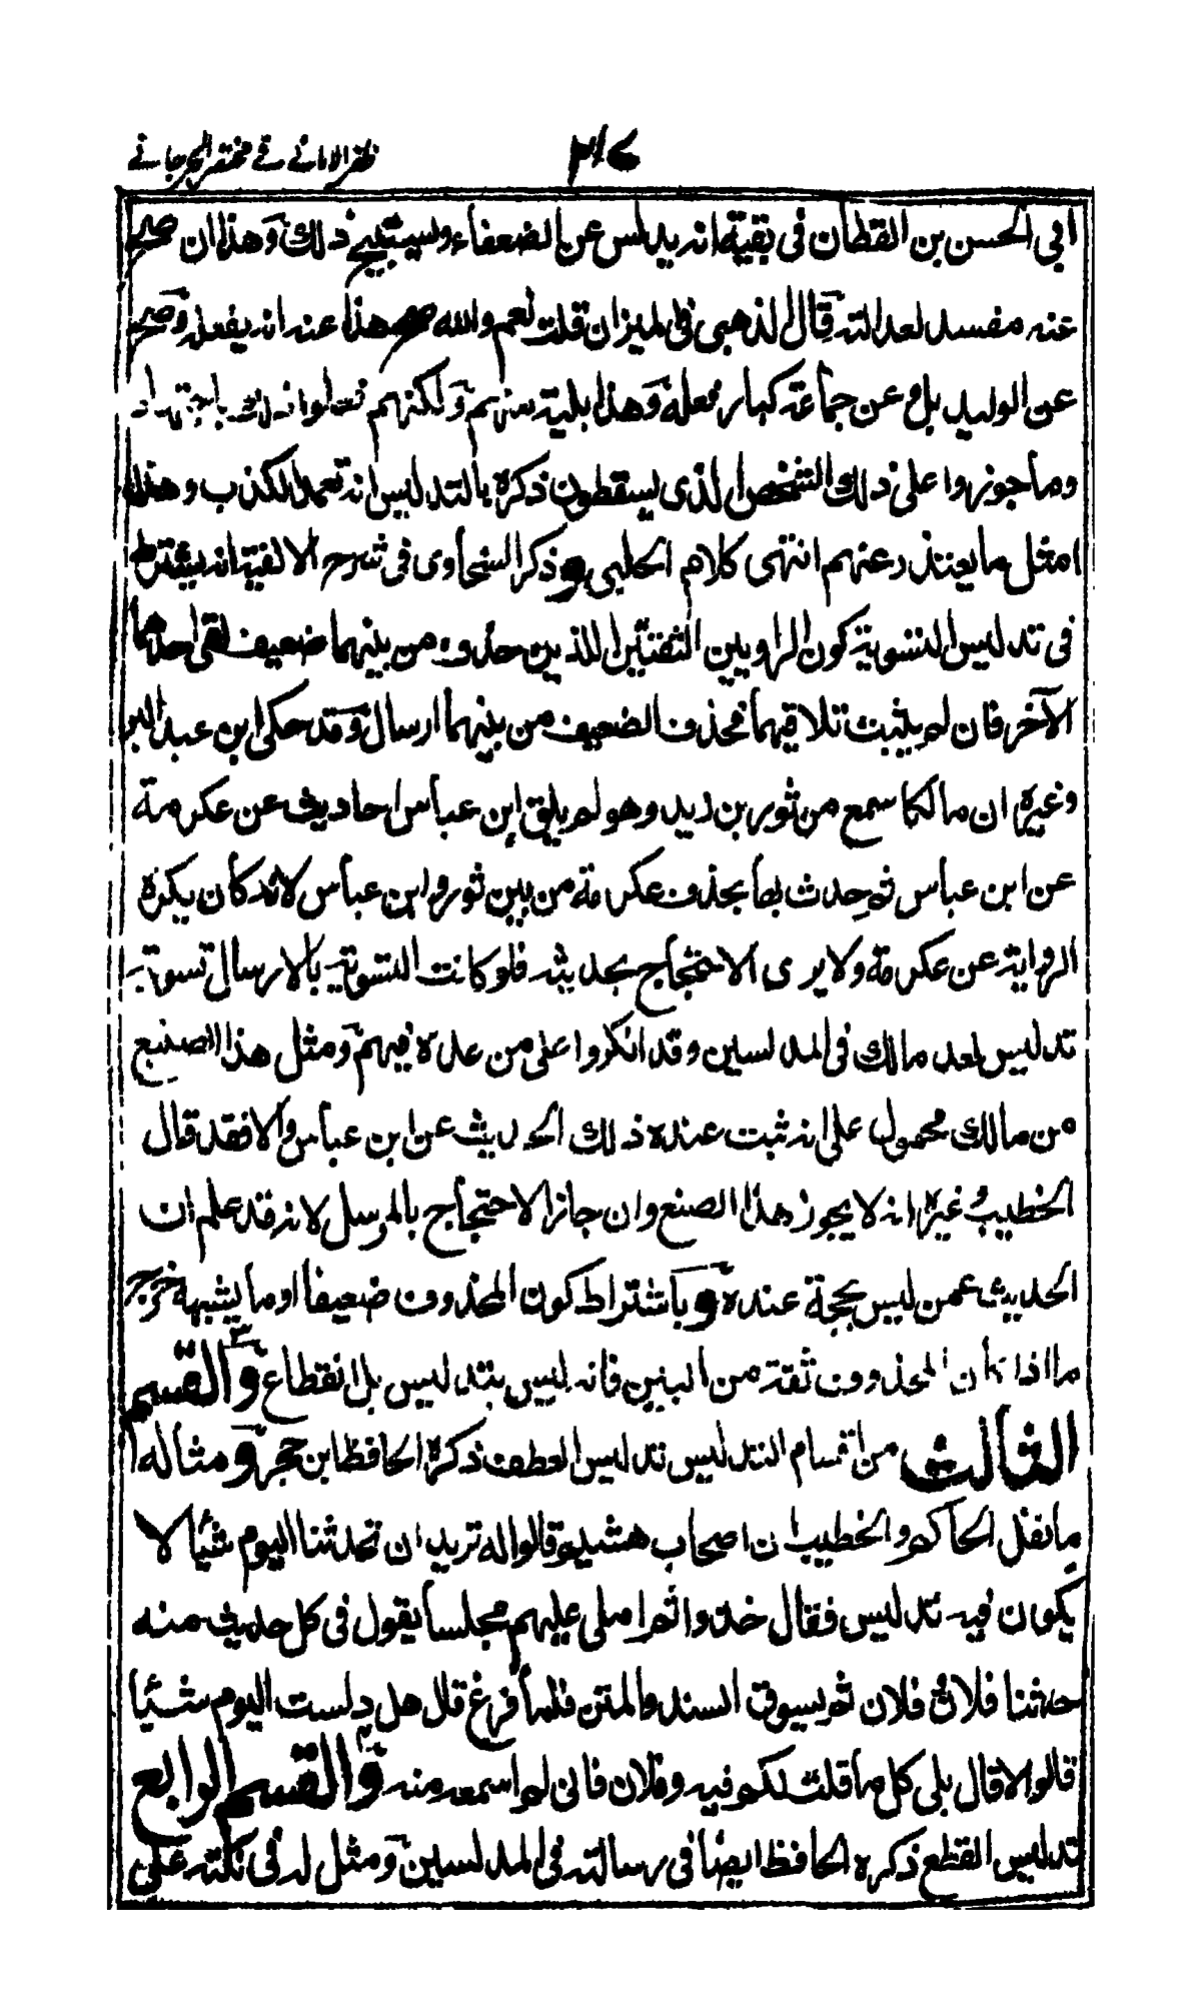 ظفر الامانے فے مختصر الجرجانے
٢١٤
ابي الحسن بن القطان فى بقية انه يدلس عن الضعفاء ويستبيح ذلك وهذا ان صح
عنه مفسد لعدالته قال الذهبى فى الميزان قلت نعم والله صح هذا عنه انه يفعله وصح
عن الوليد بل وعن جماعة كبار فعله وهذا بلية منهم ولكنهم فعلوا ذلك باجتهاد
وما جوزوا على ذلك الشخص الذى يسقطون ذكره بالتدليس انه تعمد الكذب وهذا
امثل ما يعتذر عنهم انتهى كلام الحلبى وذكر السخاوى فى شرح الالفية انه يشترط
فى تدليس التسوية كون الراويين الثقتين اللذين حذف من بينهما ضعيف لقى احدهما
الآخر فان لم يثبت تلاقيهما فحذف الضعيف من بينهما ارسال وقد حكى ابن عبد البر
وغيره ان مالكا سمع من ثور بن زيد وهو لم يلق ابن عباس احاديث عن عكرمة
عن ابن عباس ثم حدث بها بحذف عكرمة من بين ثور وابن عباس لانه كان يكره
الرواية عن عكرمة ولا يرى الاحتجاج بحديثه فلو كانت التسوية بالارسال تسوية
تدليس لعد مالك فى المدلسين وقد انكروا على من عده فيهم ومثل هذا الصنيع
من مالك محمول على انه ثبت عنده ذلك الحديث عن ابن عباس والا فقد قال
الخطيب وغيره انه لا يجوز هذا الصنع وان جاز الاحتجاج بالمرسل لانه قد علم ان
الحديث عمن ليس بحجة عنده وباشتراط كون المحذوف ضعيفا او ما يشبهه خرج
ما اذا كان المحذوف ثقة من البين فانه ليس بتدليس بل انقطاع والقسم
الثالث من اقسام التدليس تدليس العطف ذكره الحافظ ابن حجر ومثاله
ما نقل الحاكم والخطيب ان اصحاب هشيم قالوا له نريد ان تحدثنا اليوم شيئا لا
يكون فيه تدليس فقال خذوا ثم املى عليهم مجلسا يقول فى كل حديث منه
حدثنا فلان وفلان ثم يسوق السند والمتن فلما فرغ قال هل دلست اليوم شيئا
قالوا لا قال بلى كل ما قلت لكم فيه وفلان فانى لم اسمعه منه والقسم الرابع
تدليس القطع ذكره الحافظ ايضا فى رسالته فى المدلسين ومثل له فى نكته على